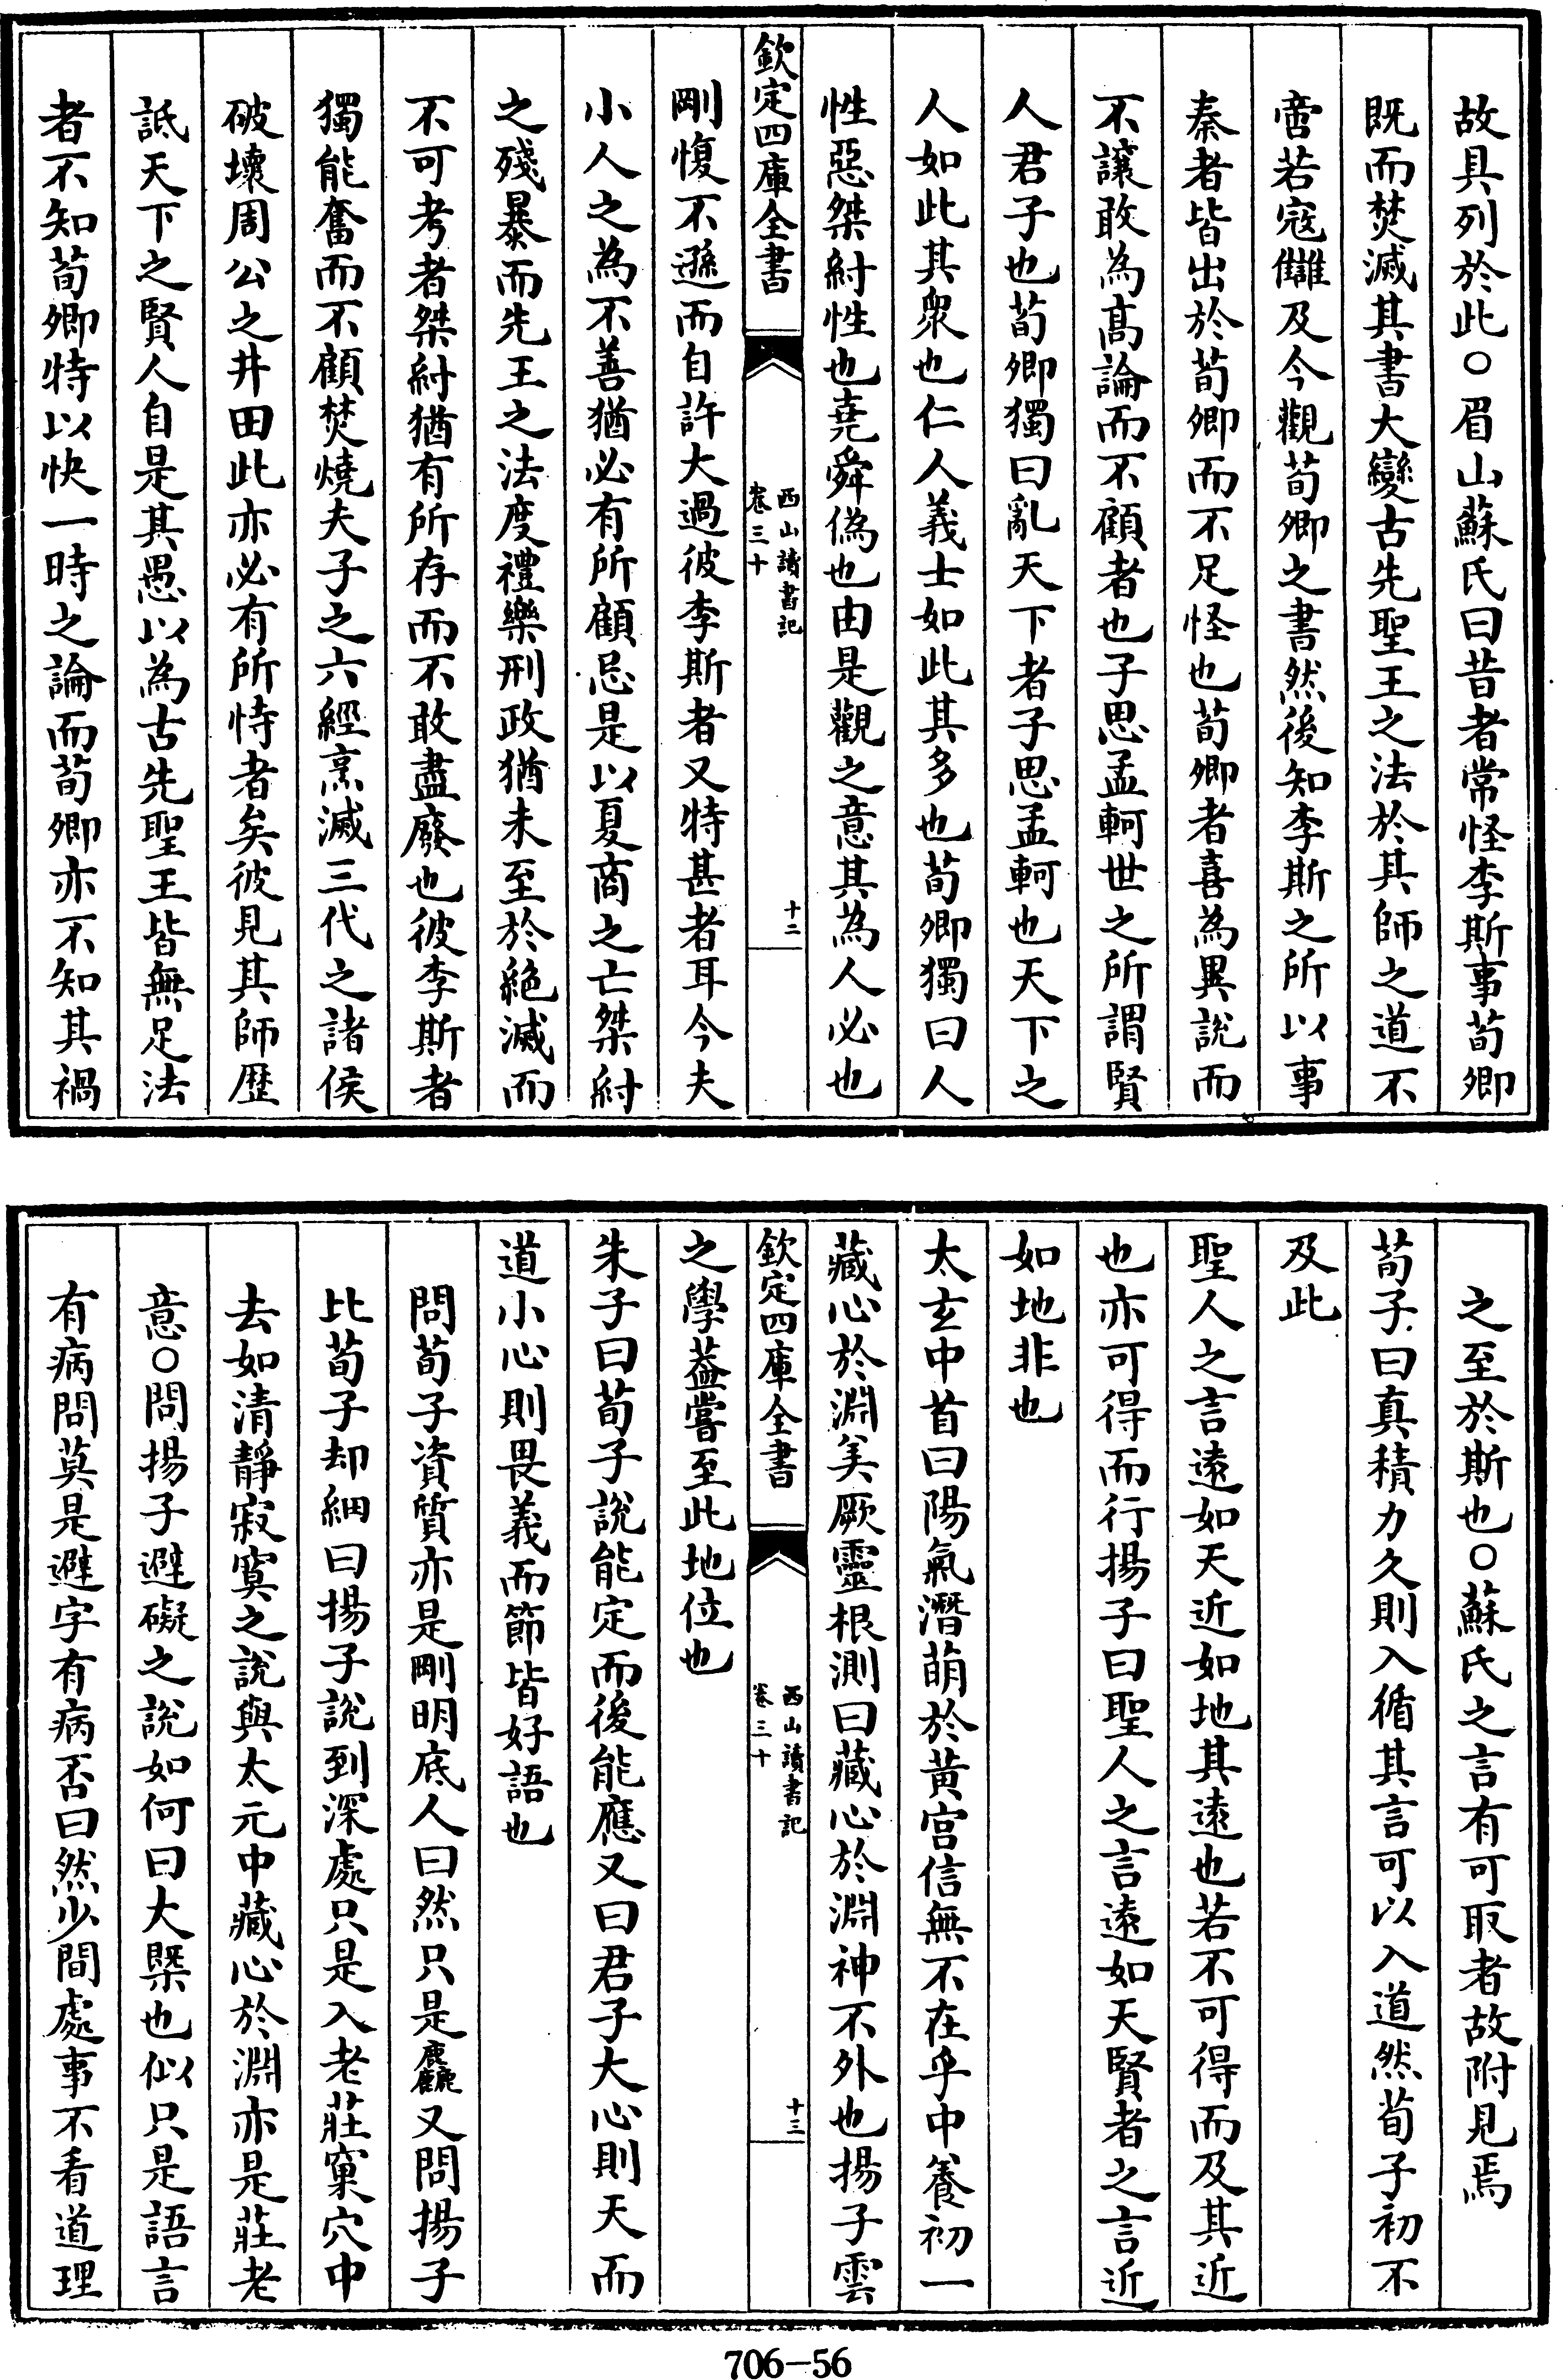 故具列於此○眉山蘇氏曰昔者常怪李斯事荀卿
既而焚滅其書大變古先聖王之法於其師之道不
啻若寇讎及今觀荀卿之書然後知李斯之所以事
秦者皆出於荀卿而不足怪也荀卿者喜為異說而
不讓敢為高論而不顧者也子思孟軻世之所謂賢
人君子也荀卿獨曰亂天下者子思孟軻也天下之
人如此其衆也仁人義士如此其多也荀卿獨曰人
性惡桀紂性也堯舜偽也由是觀之意其為人必也
欽定四庫全書
西山讀書記
卷三十
十二
剛愎不遜而自許大過彼李斯者又特甚者耳今夫
小人之為不善猶必有所顧忌是以夏商之亡桀紂
之殘暴而先王之法度禮樂刑政猶未至於絕滅而
不可考者桀紂猶有所存而不敢盡廢也彼李斯者
獨能奮而不顧焚燒夫子之六經烹滅三代之諸侯
破壞周公之井田此亦必有所恃者矣彼見其師歷
詆天下之賢人自是其愚以為古先聖王皆無足法
者不知荀卿特以快一時之論而荀卿亦不知其禍
之至於斯也○蘇氏之言有可取者故附見焉
荀子曰真積力久則入循其言可以入道然荀子初不
及此
聖人之言遠如天近如地其遠也若不可得而及其近
也亦可得而行揚子曰聖人之言遠如天賢者之言近
如地非也
太玄中首曰陽氣潛萌於黃宮信無不在乎中養初一
藏心於淵美厥靈根測曰藏心於淵神不外也揚子雲
欽定四庫全書
西山讀書記
卷三十
十三
之學蓋嘗至此地位也
朱子曰荀子說能定而後能應又曰君子大心則天而
道小心則畏義而節皆好語也
問荀子資質亦是剛明底人曰然只是麤又問揚子
比荀子却細曰揚子說到深處只是入老莊窠穴中
去如清靜寂寞之說與太元中藏心於淵亦是莊老
意○問揚子避礙之說如何曰大槩也似只是語言
有病問莫是避字有病否曰然少間處事不看道理
706-56